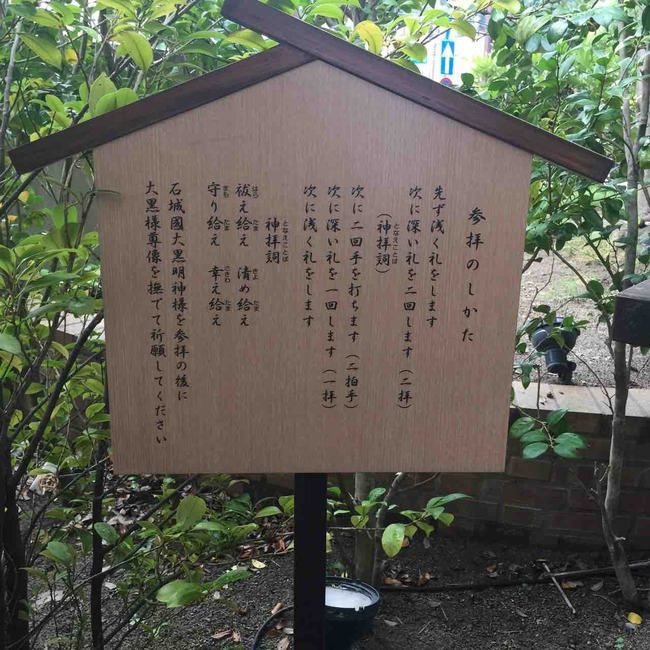 参拝のしかた
先ず浅く礼をします
次に深い礼を二回します（二拝）
（神拝詞）
となえことば
次に二回手を打ちます（二拍手）
次に深い礼を一回します（一拝）
次に浅く礼をします
神拝詞
となえことば
祓え給え 清め給え
はら たま きよ たま
守り給え 幸え給え
まも たま さきわ たま
石城國大黒明神様を参拝の後に
大黒様尊像を撫でて祈願してください